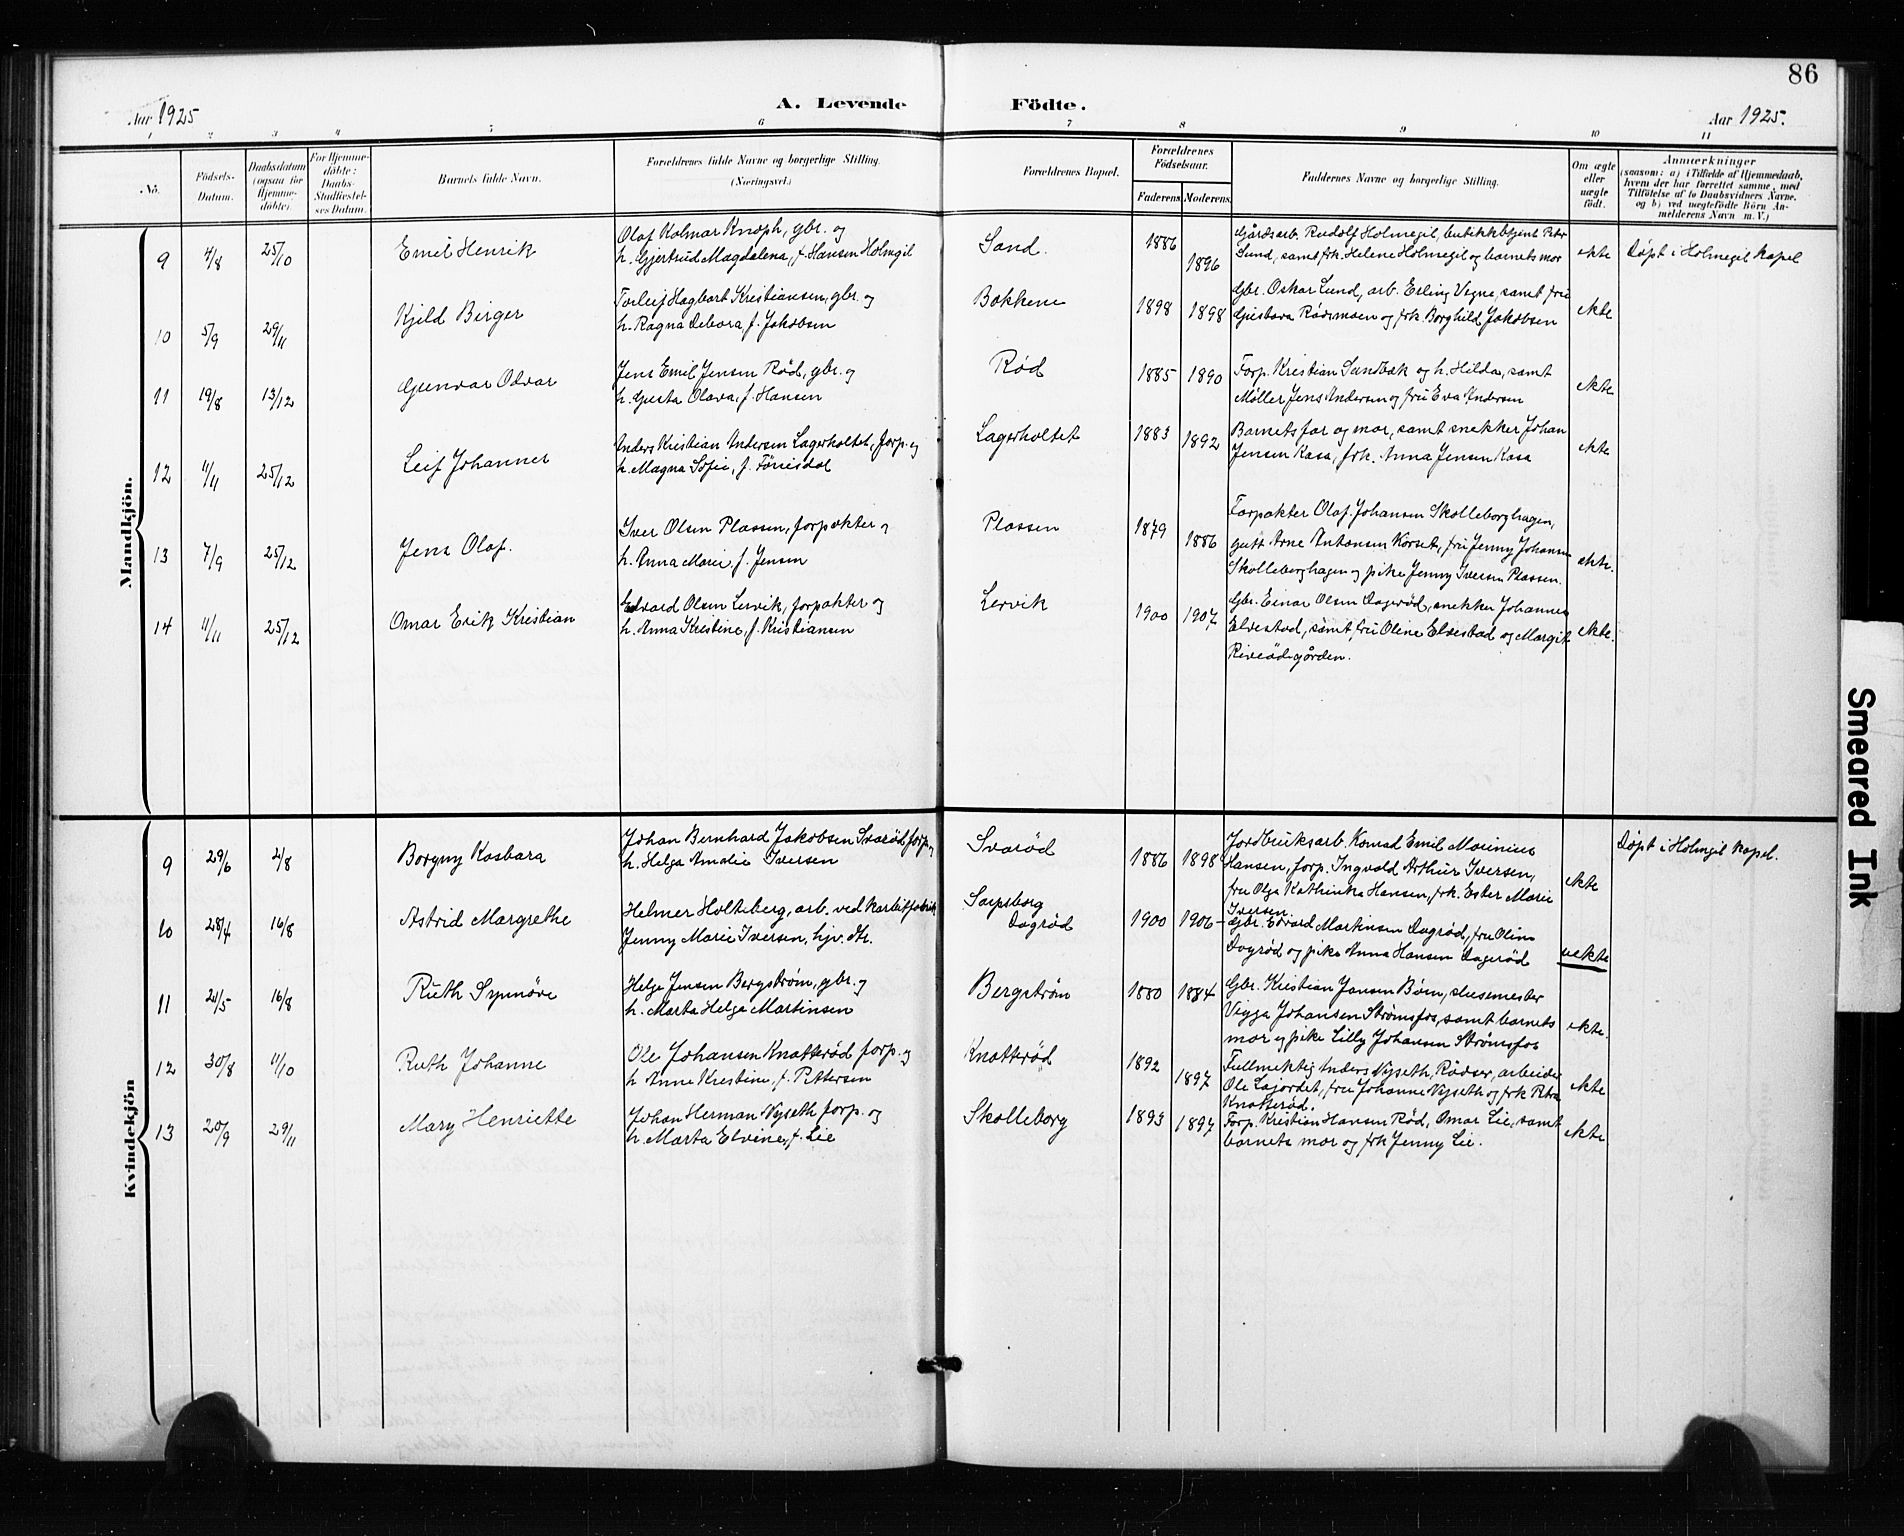 86
Aar 1925
A. Levende Födte.
Aar 1925.
1 2 3 4 5 6 7 8 9 10 11
No.
Födsels-Datum.
Daabsdatum (ogsaa for Hjemme-döbte).
For Hjemme-döbte: Daabs-Stadfæstel-ses Datum.
Barnets fulde Navn.
Forældrenes fulde Navne og borgerlige Stilling.
(Næringsvei.)
Forældrenes Bopæl.
Forældrenes Födselsaar.
Faderens Moderens
Faddernes Navne og borgerlige Stilling.
Om ægte eller uægte födt.
Anmærkninger
(saasom: a) i Tilfælde af Hjemmedaab,
hvem der har forrettet samme, med
Tilföielse af to Daabsvidners Navne.
og b) ved uægtefödte Börn An-
melderens Navn m. V.)
Mandkjön.
9 4/8 25/10 Emil Henrik
Olaf Kolmar Knoph, gbr. og
h. Gjertrud Magdalena, f. Hansen Holmgil
Sand. 1886 1896
Gårdsarb. Rudolf Holmegil, butikkbetjent Peter
Sund, samt frk. Helene Holmegil og barnets mor
ekte Døpt i Holmegil Kapel
10 5/9 29/11 Kjeld Birger
Torleif Hagbart Kristiansen, gbr. og
h. Ragna Debora, f. Jakobsen
Bakkene 1898 1898
Gbr. Oskar Lund, arb. Erling Vigne, samt fru
Gustava Rødsmoen og frk. Borghild Jakobsen
ekte
11 19/8 13/12 Gunvar Odvar
Jens Emil Jensen Rød, gbr. og
h. Gusta Olava, f. Hansen
Rød 1885 1890
Forp. Kristian Sundbæk og h. Hilda, samt
Møller Jens Andersen og fru Eva Andersen
ekte
12 11/11 25/12 Leif Johannes
Anders Kristian Andersen Lagerholtet, forp. og
h. Magna Sofie, f. Tørrisdal
Lagerholtet 1883 1892
Barnets far og mor, samt snekker Johan
Jensen Kasa, frk. Anna Jensen Kasa
ekte
13 7/9 25/12 Jens Olaf.
Iver Olsen Plassen, forpakter og
h. Anna Marie, f. Jensen
Plassen 1879 1886
Forpakter Olaf Johansen Skolleborghagen,
gutt Arne Antonsen Korset, fru Jenny Johansen
Skolleborghagen og pike Jenny Iversen Plassen.
ekte.
14 11/11 25/12 Omar Erik Kristian
Edvard Olsen Lervik, forpakter og
h. Anna Kristine, f. Kristiansen
Lervik 1900 1907
Gbr. Einar Olsen Dagrød, snekker Johannes
Elvestad, samt fru Olene Elvestad og Margit
gården.
ekte.
Kvindekjön
9 29/6 2/8 Borgny Kasbara
Johan Bernhard Jakobsen Svarød forp. og
h. Helga Amalie Iversen
Svarød 1886 1898
Jordbruksarb. Konrad Emil Marinius
Hansen, forp. Ingvald Arthur Iversen,
fru Olga Kathinka Hansen, frk. Ester Marie
Iversen
ekte Døpt i Holmgil Kapel.
10 28/4 16/8 Astrid Margrethe
Helmer Holteberg, arb. ved karbidfabrik
Jenny Marie Iversen, hjv. dtr.
Sarpsborg
Dagrød 1900 1906
Gbr. Edvard Martinsen Dagrød, fru Oline
Dagrød og pike Anna Hansen Dagrød
uekte
11 21/5 16/8 Ruth Synnøve
Helge Jensen Bergstrøm, gbr. og
h. Marta Helga Martinsen
Bergstrøm 1880 1884
Gbr. Kristian Jansen Bøen, slusemester
Vigga Johansen Strømsfos, samt barnets
mor og pike Lilly Johansen Strømsfos
ekte.
12 30/8 11/10 Ruth Johanne
Ole Johansen Knatterød forp. og
h. Anne Kristine, f. Pettersen
Knatterød 1892 1897
Fullmektig Anders Nyseth, Rødser, arbeider
Ole Lajordet, fru Johanne Nyseth og frk Petra
Knatterød.
ekte
13 20/9 29/11 Mary Henriette
Johan Herman Nyseth forp. og
h. Marta Elvine, f. Lie
Skolleborg 1893 1897
Forp. Kristian Hansen Rød, Omar Lie, samt
barnets mor og frk Jenny Lie.
ekte
Smeared Ink